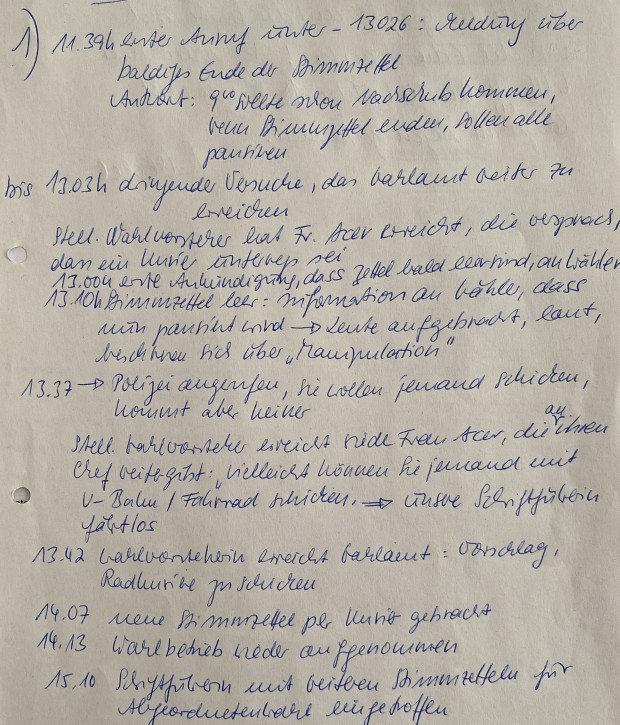 1) 11.39h erster Anruf unter -13026: Meldung über
baldiges Ende der Stimmzettel
Antwort: 9⁰⁰ sollte schon Nachschub kommen,
wenn Stimmzettel enden, sollen alle
pausieren
bis 13.03h dringender Versuche, das Wahlamt weiter zu
erreichen
Stell. Wahlvorsteher hat Fr. Acer erreicht, die versprach,
dass ein Kurier unterwegs sei
13.00h erste Ankündigung, dass Zettel bald leer sind, an Wähler
13.10h Stimmzettel leer: Information an Wähler, dass
nun pausiert wird → Leute aufgebracht, laut,
beschweren sich über „Manipulation"
13.37 → Polizei angerufen, sie wollen jemand schicken,
kommt aber keiner
Stell. Wahlvorsteher erreicht wieder Frau Acer, die an ihren
Chef weitergibt: „Vielleicht können Sie jemand mit
U-Bahn / Fahrrad schicken. ⇒ unsere Schriftführerin
fährt los
13.42 Wahlvorsteherin erreicht Wahlamt: Vorschlag,
Radkurier zu schicken
14.07 neue Stimmzettel per Kurier gebracht
14.13 Wahlbetrieb wieder aufgenommen
15.10 Schriftführerin mit weiteren Stimmzetteln für
Abgeordnetenwahl eingetroffen